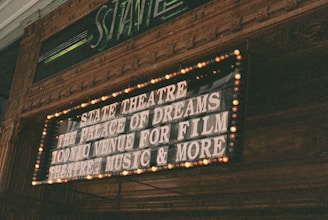 STATE
STATE THEATRE
THE PALACE OF DREAMS
ICONIC VENUE FOR FILM
THEATRE MUSIC & MORE